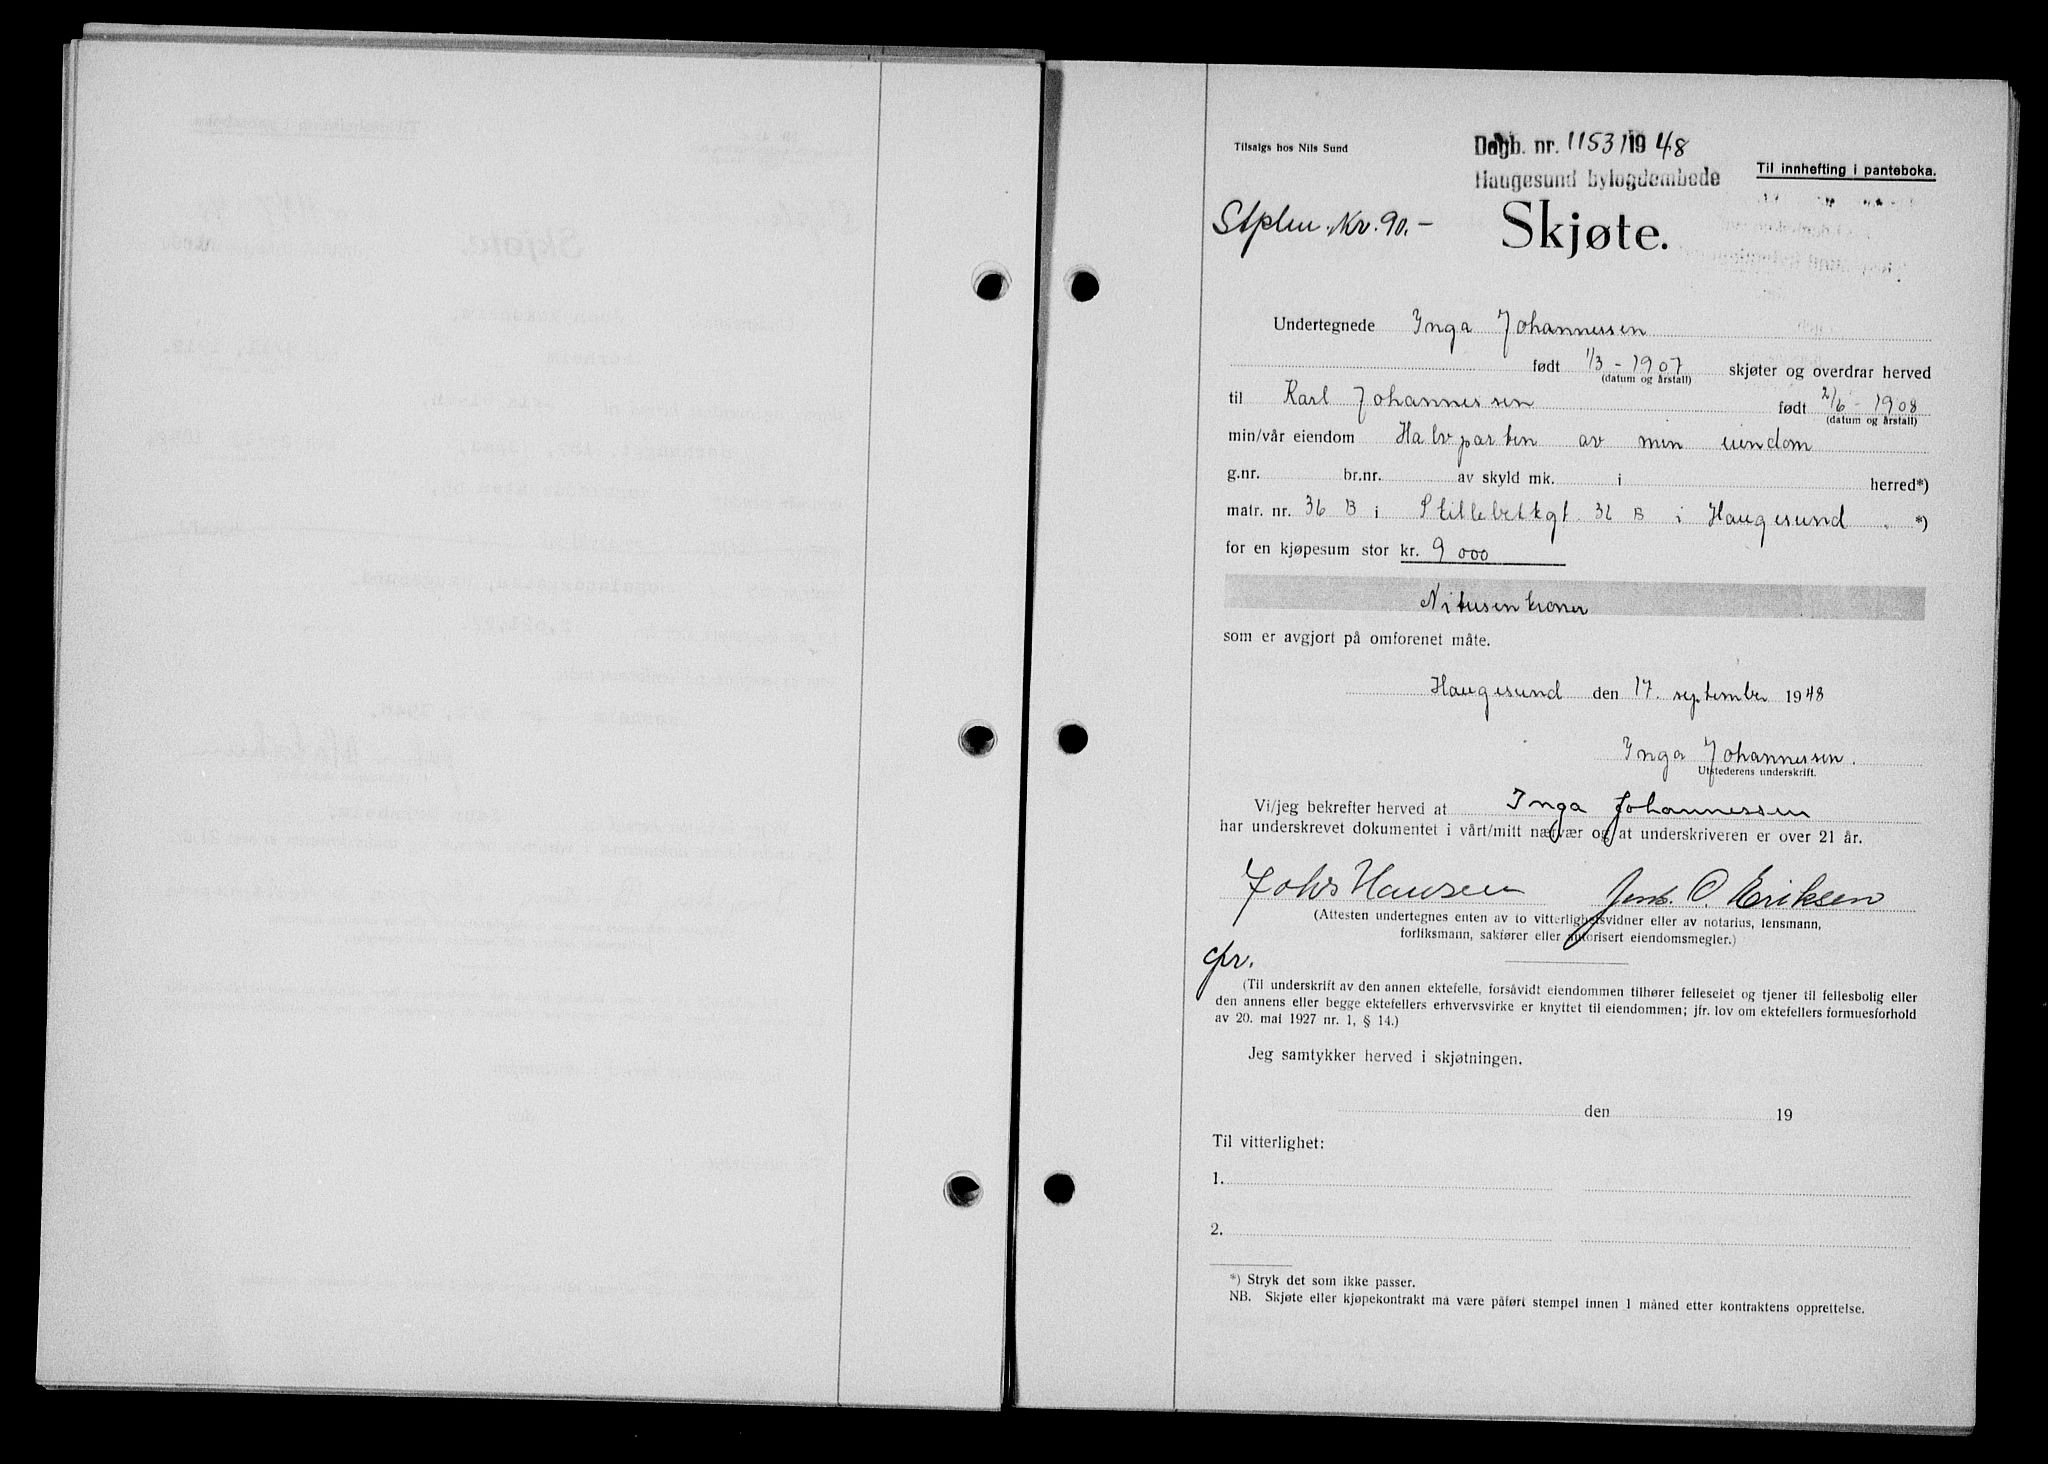 Tilsalgs hos Nils Sund
Dagb. nr. 1153/1948
Haugesund byfogdembede
Til innhefting i panteboka.
Stplm. Kr. 90.-
Skjøte.
Undertegnede Inga Johannessen
født 1/3 - 1907 skjøter og overdrar herved
(datum og årstall)
til Karl Johannessen født 2/6 - 1908
(datum og årstall)
min/vår eiendom Halvparten av min eiendom
g.nr. br.nr. av skyld mk. i herred*)
matr. nr. 36 B i 36 B i Haugesund . *)
for en kjøpesum stor kr. 9 000
Nitusen kroner
som er avgjort på omforenet måte.
Haugesund den 17. september 1948
Inga Johannessen.
Utstederens underskrift.
Vi/jeg bekrefter herved at Inga Johannessen
har underskrevet dokumentet i vårt/mitt nærvær og at underskriveren er over 21 år.
Johs Hansen Jens. O. Eriksen
(Attesten undertegnes enten av to vitterlighetsvidner eller av notarius, lensmann,
forliksmann, sakfører eller autorisert eiendomsmegler.)
(Til underskrift av den annen ektefelle, forsåvidt eiendommen tilhører felleseiet og tjener til fellesbolig eller
den annens eller begge ektefellers erhvervsvirke er knyttet til eiendommen; jfr. lov om ektefellers formuesforhold
av 20. mai 1927 nr. 1, § 14.)
Jeg samtykker herved i skjøtningen.
den 19
Til vitterlighet:
1.
2.
*) Stryk det som ikke passer.
NB. Skjøte eller kjøpekontrakt må være påført stempel innen 1 måned etter kontraktens opprettelse.